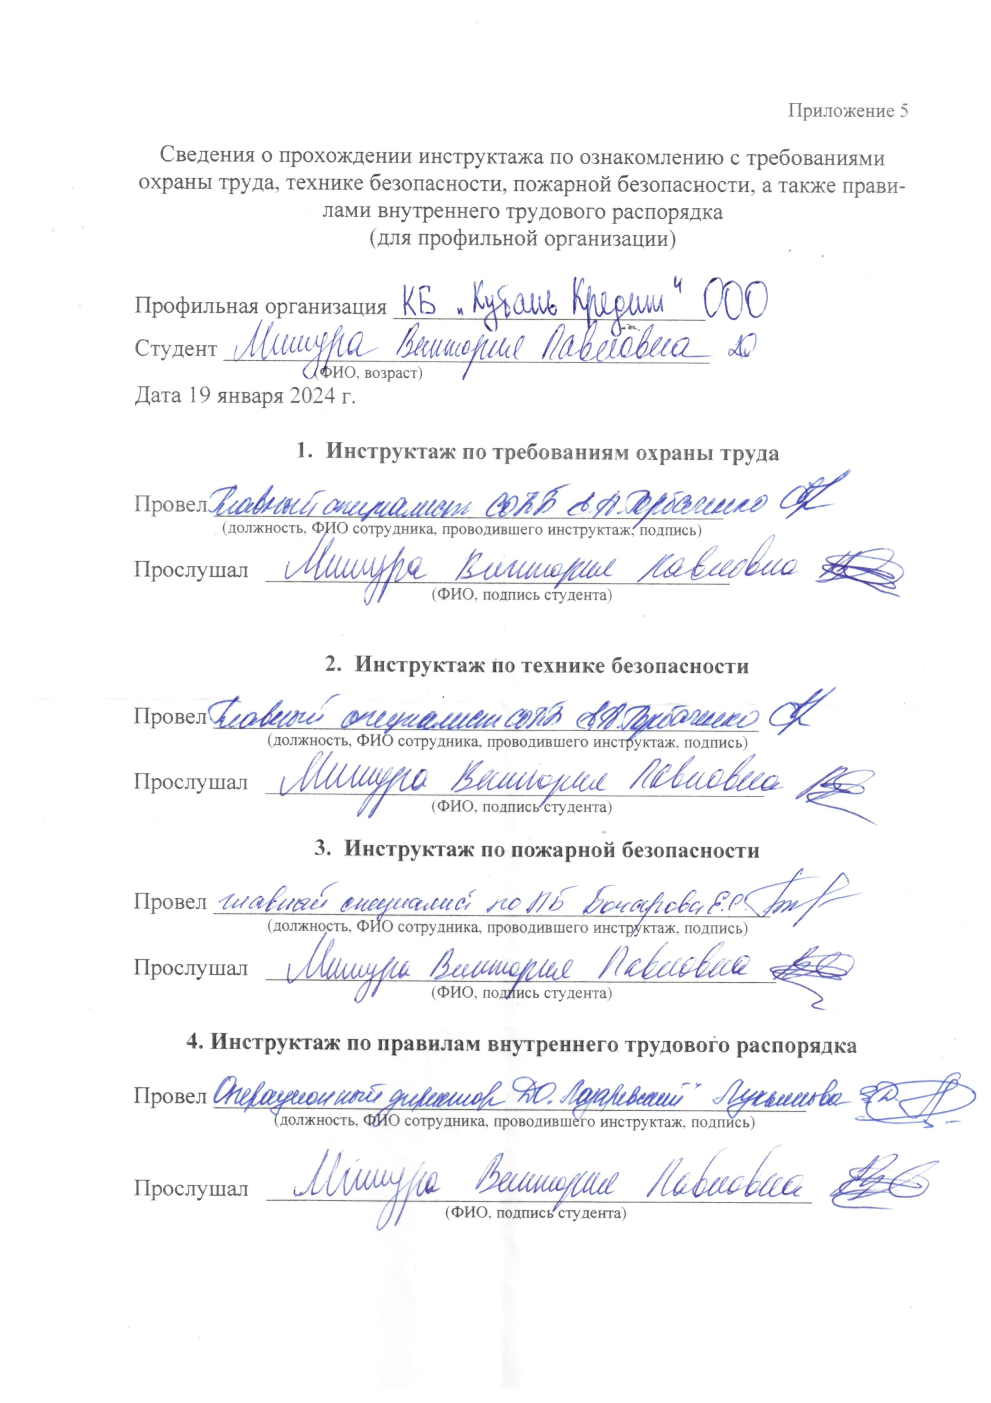 Приложение 5
Сведения о прохождении инструктажа по ознакомлению с требованиями
охраны труда, технике безопасности, пожарной безопасности, а также прави-
лами внутреннего трудового распорядка
(для профильной организации)
Профильная организация КБ „Кубань Кредит" ООО
Студент Мишура Виктория Павловна 20
(ФИО, возраст)
Дата 19 января 2024 г.
1. Инструктаж по требованиям охраны труда
Провел Главный специалист СОТПБ А.А. Горбаченко
(должность, ФИО сотрудника, проводившего инструктаж, подпись)
Прослушал Мишура Виктория Павловна
(ФИО, подпись студента)
2. Инструктаж по технике безопасности
Провел Главный специалист СОТПБ А.А. Горбаченко
(должность, ФИО сотрудника, проводившего инструктаж, подпись)
Прослушал Мишура Виктория Павловна
(ФИО, подпись студента)
3. Инструктаж по пожарной безопасности
Провел главный специалист по ПБ Бочарова Е.С.
(должность, ФИО сотрудника, проводившего инструктаж, подпись)
Прослушал Мишура Виктория Павловна
(ФИО, подпись студента)
4. Инструктаж по правилам внутреннего трудового распорядка
Провел Операционный директор ДО „Лазаревский"
(должность, ФИО сотрудника, проводившего инструктаж, подпись)
Прослушал Мишура Виктория Павловна
(ФИО, подпись студента)